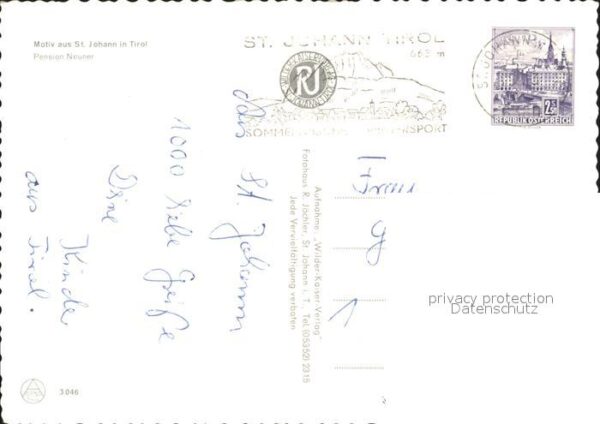 Motiv aus St. Johann in Tirol
Pension Neuner
ST. JOHANN TIROL
663 m
WILDER KAISER VERLAG
RJ
ST. JOHANN
SOMMERFRISCHE WINTERSPORT
2.50 S
REPUBLIK ÖSTERREICH
Aus
St. Johann
1000 liebe Grüße
Deine
Kinder
aus Tirol.
Aufnahme: „Wilder-Kaiser-Verlag"
Fotohaus R. Jöchler, St. Johann i. T., Tel. (05352) 2315
Jede Vervielfältigung verboten
Frau
privacy protection
Datenschutz
3 046